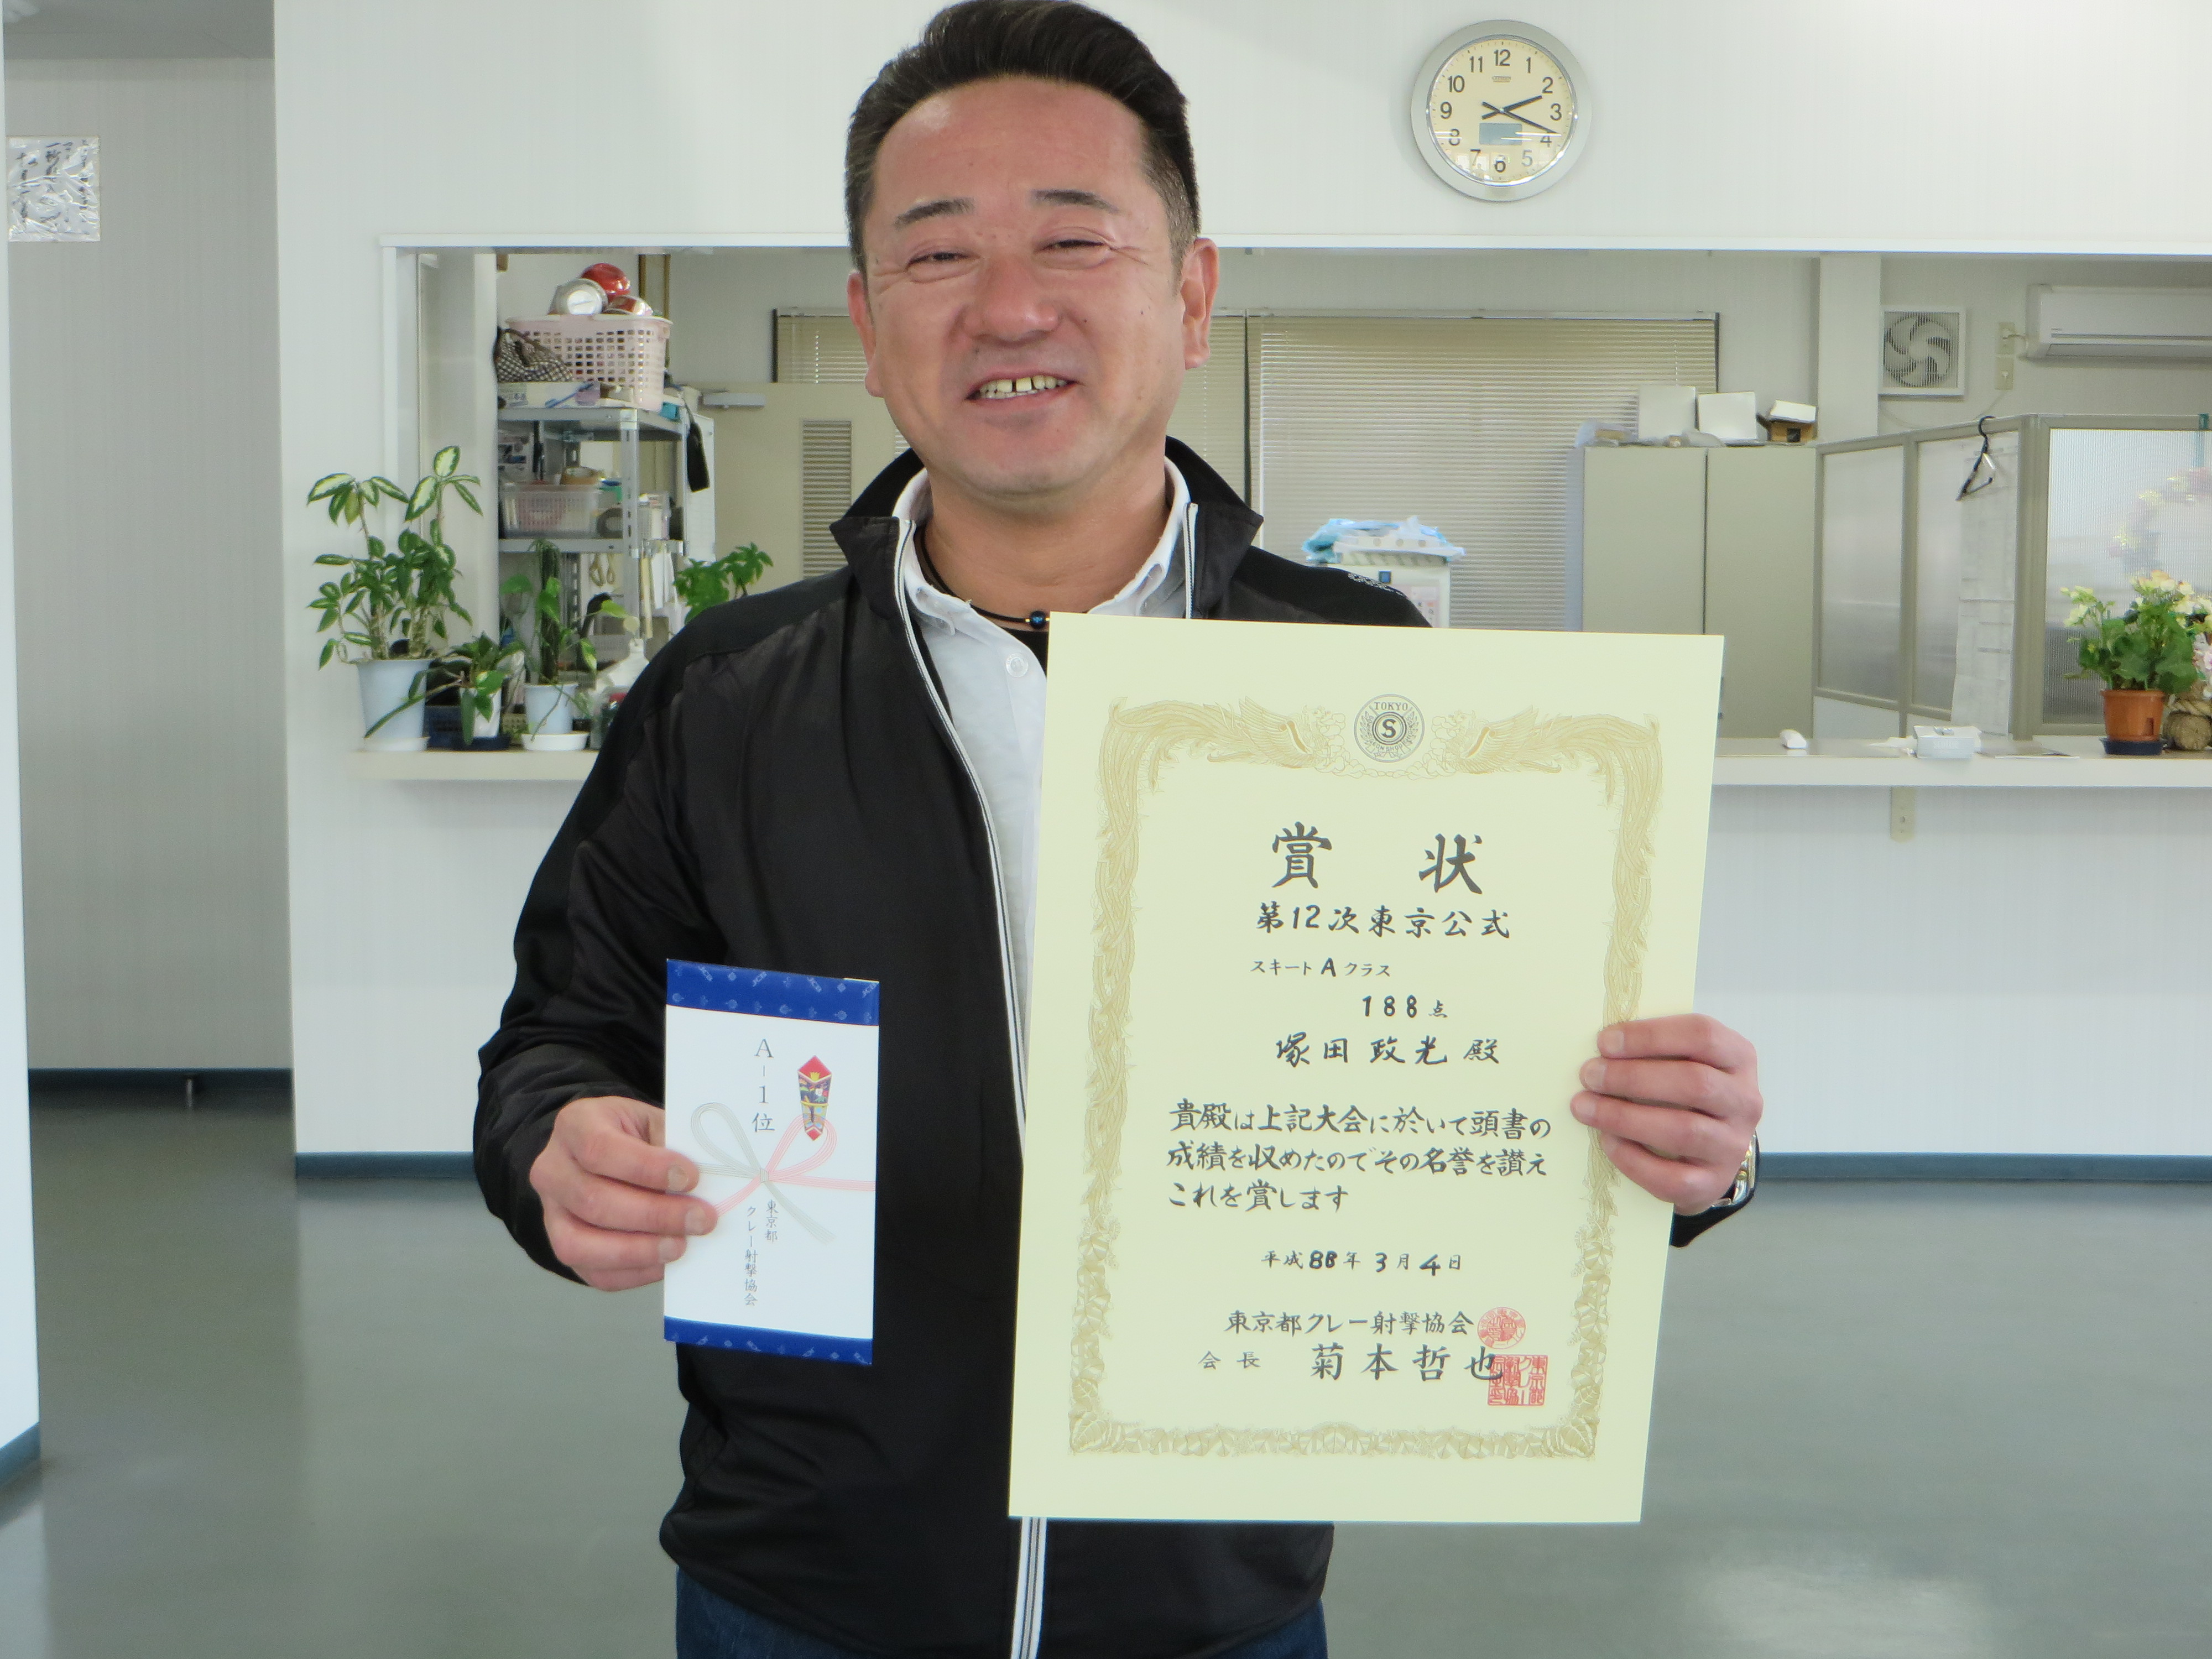 12
1
2
3
4
5
6
7
8
9
10
11
CITIZEN
TOKYO
S
賞 状
第12次東京公式
スキート A クラス
188点
塚田政光殿
貴殿は上記大会に於いて頭書の
成績を収めたのでその名誉を讃え
これを賞します
平成88年3月4日
東京都クレー射撃協会
会長 菊本哲也
JCB
A-1位
東京都
クレー射撃協会